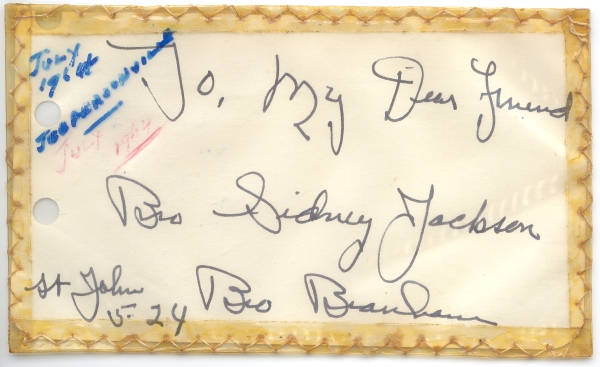 July
1964
Jeffersonville
July 1964
To, My Dear Friend
Bro Sidney Jackson
St John Bro Branham
5-24